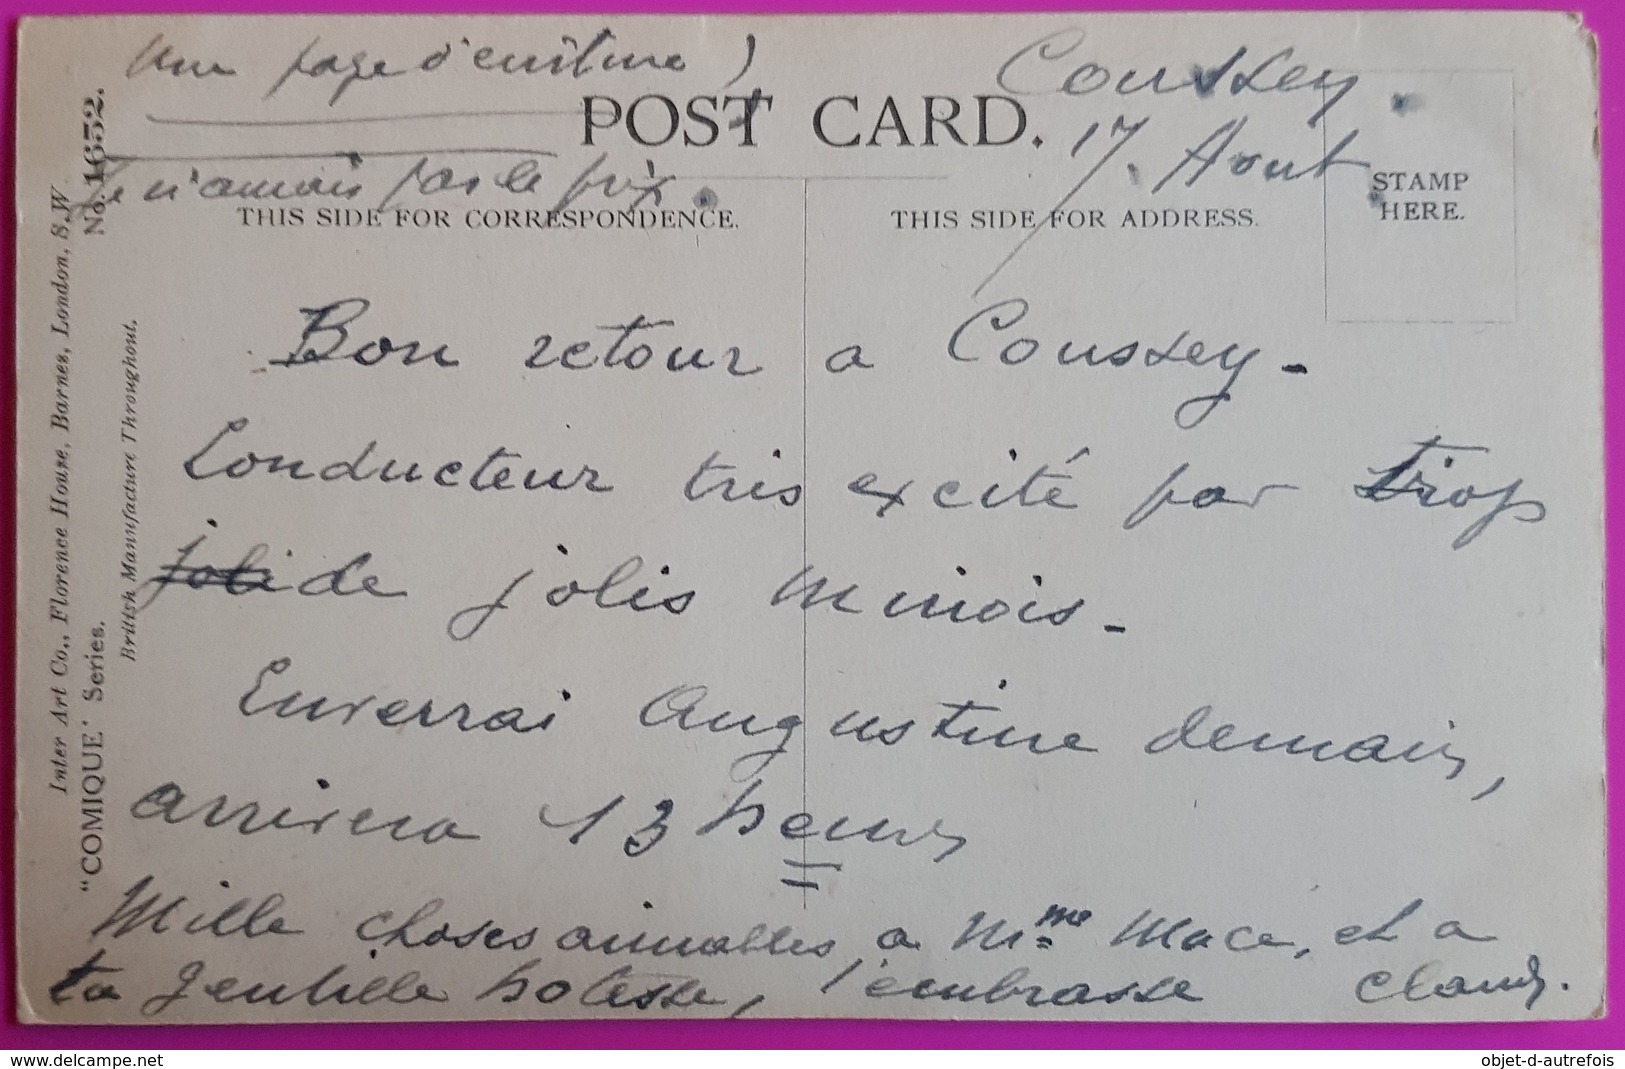 Une page d'écriture !
Coussey.
17. Aout
POST CARD.
Je n'aurais pas le prix.
STAMP
HERE.
THIS SIDE FOR CORRESPONDENCE.
THIS SIDE FOR ADDRESS.
Inter Art Co., Florence House, Barnes, London, S.W.
"COMIQUE" Series. No. 1652.
British Manufacture Throughout.
Bon retour a Coussey -
Conducteur tris excité par trop
joli de jolis Minois -
Enverrai Augustine demain,
arrivera 13 heures
Mille choses aimables, a Mme Mace, et a
ta gentille hotesse, t'embrasse
delcampe.net
objet-d-autrefois